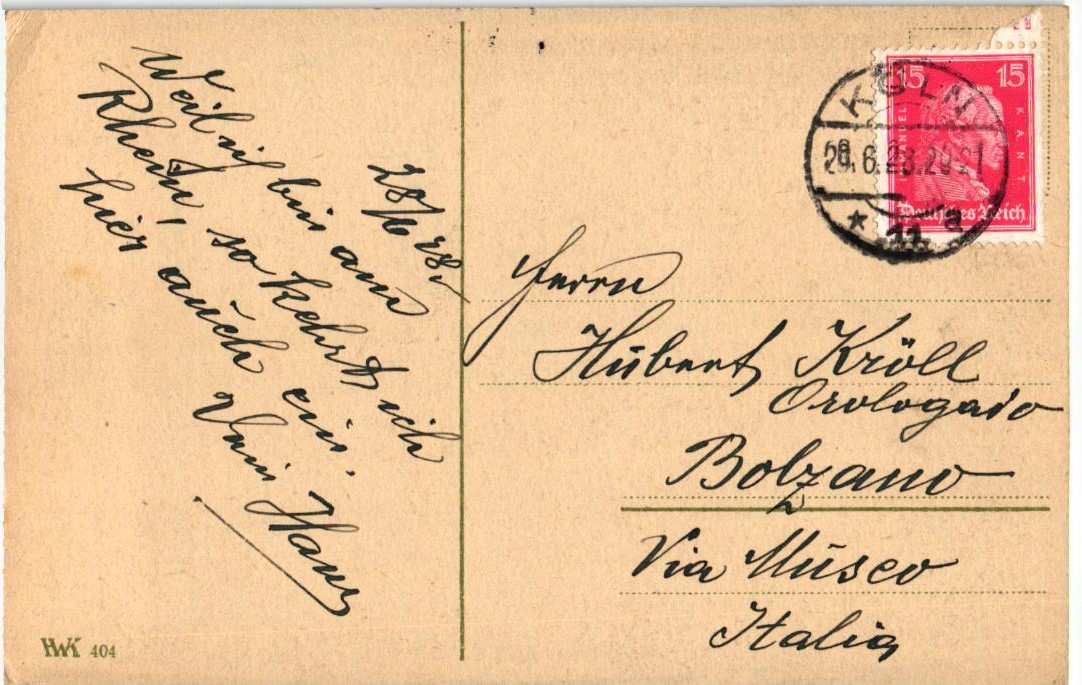 28/6 28.
Weil ich bin am
Rhein, so kehrt ich
hier auch ein.
Dein Hans
HWK 404
15 15
KANT
Deutsches Reich
KÖLN
* 11 a
Herrn
Hubert Kröll
Orologaio
Bolzano
Via Museo
Italia